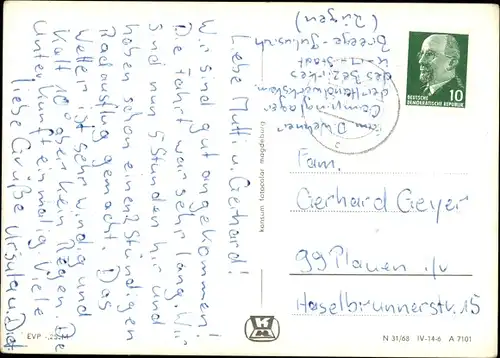 Liebe Mutti u. Gerhard!
Wir sind gut angekommen!
Die Fahrt war sehr lang. Wir
sind nun 5 Stunden hir und
haben schon einen 2 stündigen
Radausflug gemacht. Das
Wetter ist sehr windig und
kalt 10° aber kein Regen. Die
Unterkunft einmalig. Viele
liebe Grüße Ursula u. Diet
Campinglager
der Handwerkskam.
des Bezirkes
K-M-Stadt
Breege-Juliusruh
(Rügen)
DEUTSCHE
DEMOKRATISCHE REPUBLIK
10
Fam.
Gerhard Geyer
99 Plauen i/V
Haselbrunnerstr. 15
konsum fotocolor magdeburg
EVP
N 31/68 IV-14-6 A 7101